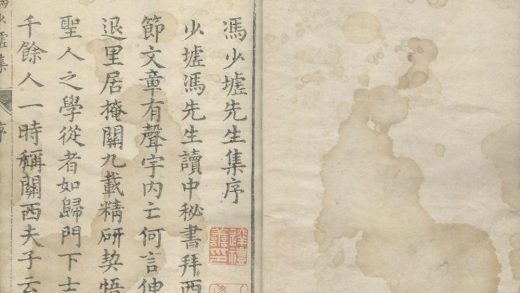 馮少墟先生集序
少墟馮先生讀中秘書拜西
節文章有聲宇内亡何言
退里居掩關九載精研契悟
聖人之學從者如歸門下士
千餘人一時稱關西夫子云
少墟集
序